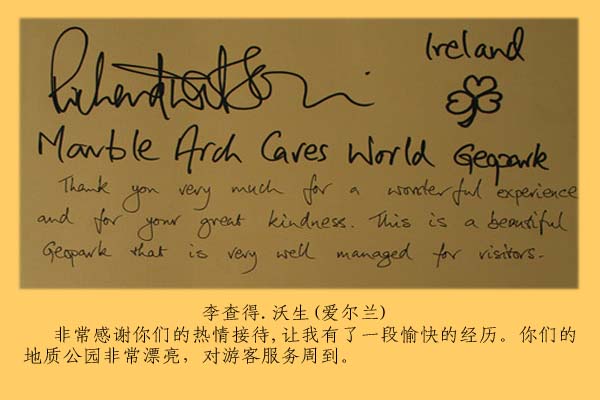 Richard Watson
Ireland
Marble Arch Caves World Geopark
Thank you very much for a wonderful experience
and for your great kindness. This is a beautiful
Geopark that is very well managed for visitors.
李查得.沃生(爱尔兰)
非常感谢你们的热情接待,让我有了一段愉快的经历。你们的
地质公园非常漂亮，对游客服务周到。